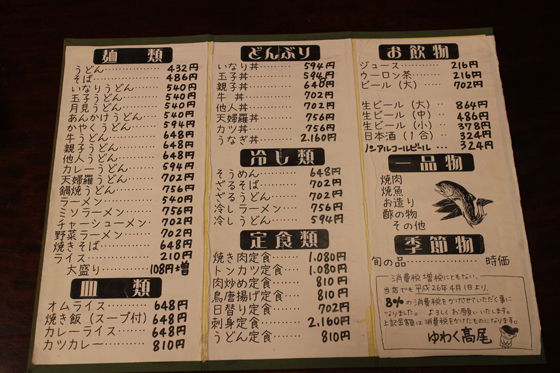 麺類
うどん 432円
そば 486円
いなりうどん 540円
玉子うどん 540円
月見うどん 540円
あんかけうどん 540円
かやくうどん 594円
牛うどん 648円
親子うどん 648円
他人うどん 648円
カレーうどん 594円
天婦羅うどん 702円
鍋焼うどん 756円
ラーメン 540円
ミソラーメン 756円
チャーシューメン 702円
野菜ラーメン 702円
焼きそば 648円
ライス 210円
大盛り 108円増
皿類
オムライス 648円
焼き飯（スープ付） 648円
カレーライス 648円
カツカレー 810円
どんぶり
いなり丼 594円
玉子丼 594円
親子丼 648円
牛丼 702円
他人丼 702円
天婦羅丼 756円
カツ丼 756円
うなぎ丼 2,160円
冷し類
そうめん 648円
ざるそば 702円
ざるうどん 702円
冷しラーメン 756円
冷しうどん 594円
定食類
焼き肉定食 1,080円
トンカツ定食 1,080円
肉炒め定食 810円
鳥唐揚げ定食 810円
日替り定食 702円
刺身定食 2,160円
うどん定食 810円
お飲物
ジュース 216円
ウーロン茶 216円
ビール（大） 702円
生ビール（大） 864円
生ビール（中） 486円
生ビール（小） 378円
日本酒（1合） 324円
ノンアルコールビール 324円
一品物
焼肉
焼魚
お造り
酢の物
その他
季節物
旬の品 時価
消費税増税にともない、
当店でも平成26年4月1日より、
8%の消費税をかけさせていただく事に
なりました。よろしくお願いいたします。
上記金額は消費税をかけたものになります。
ゆわく高尾